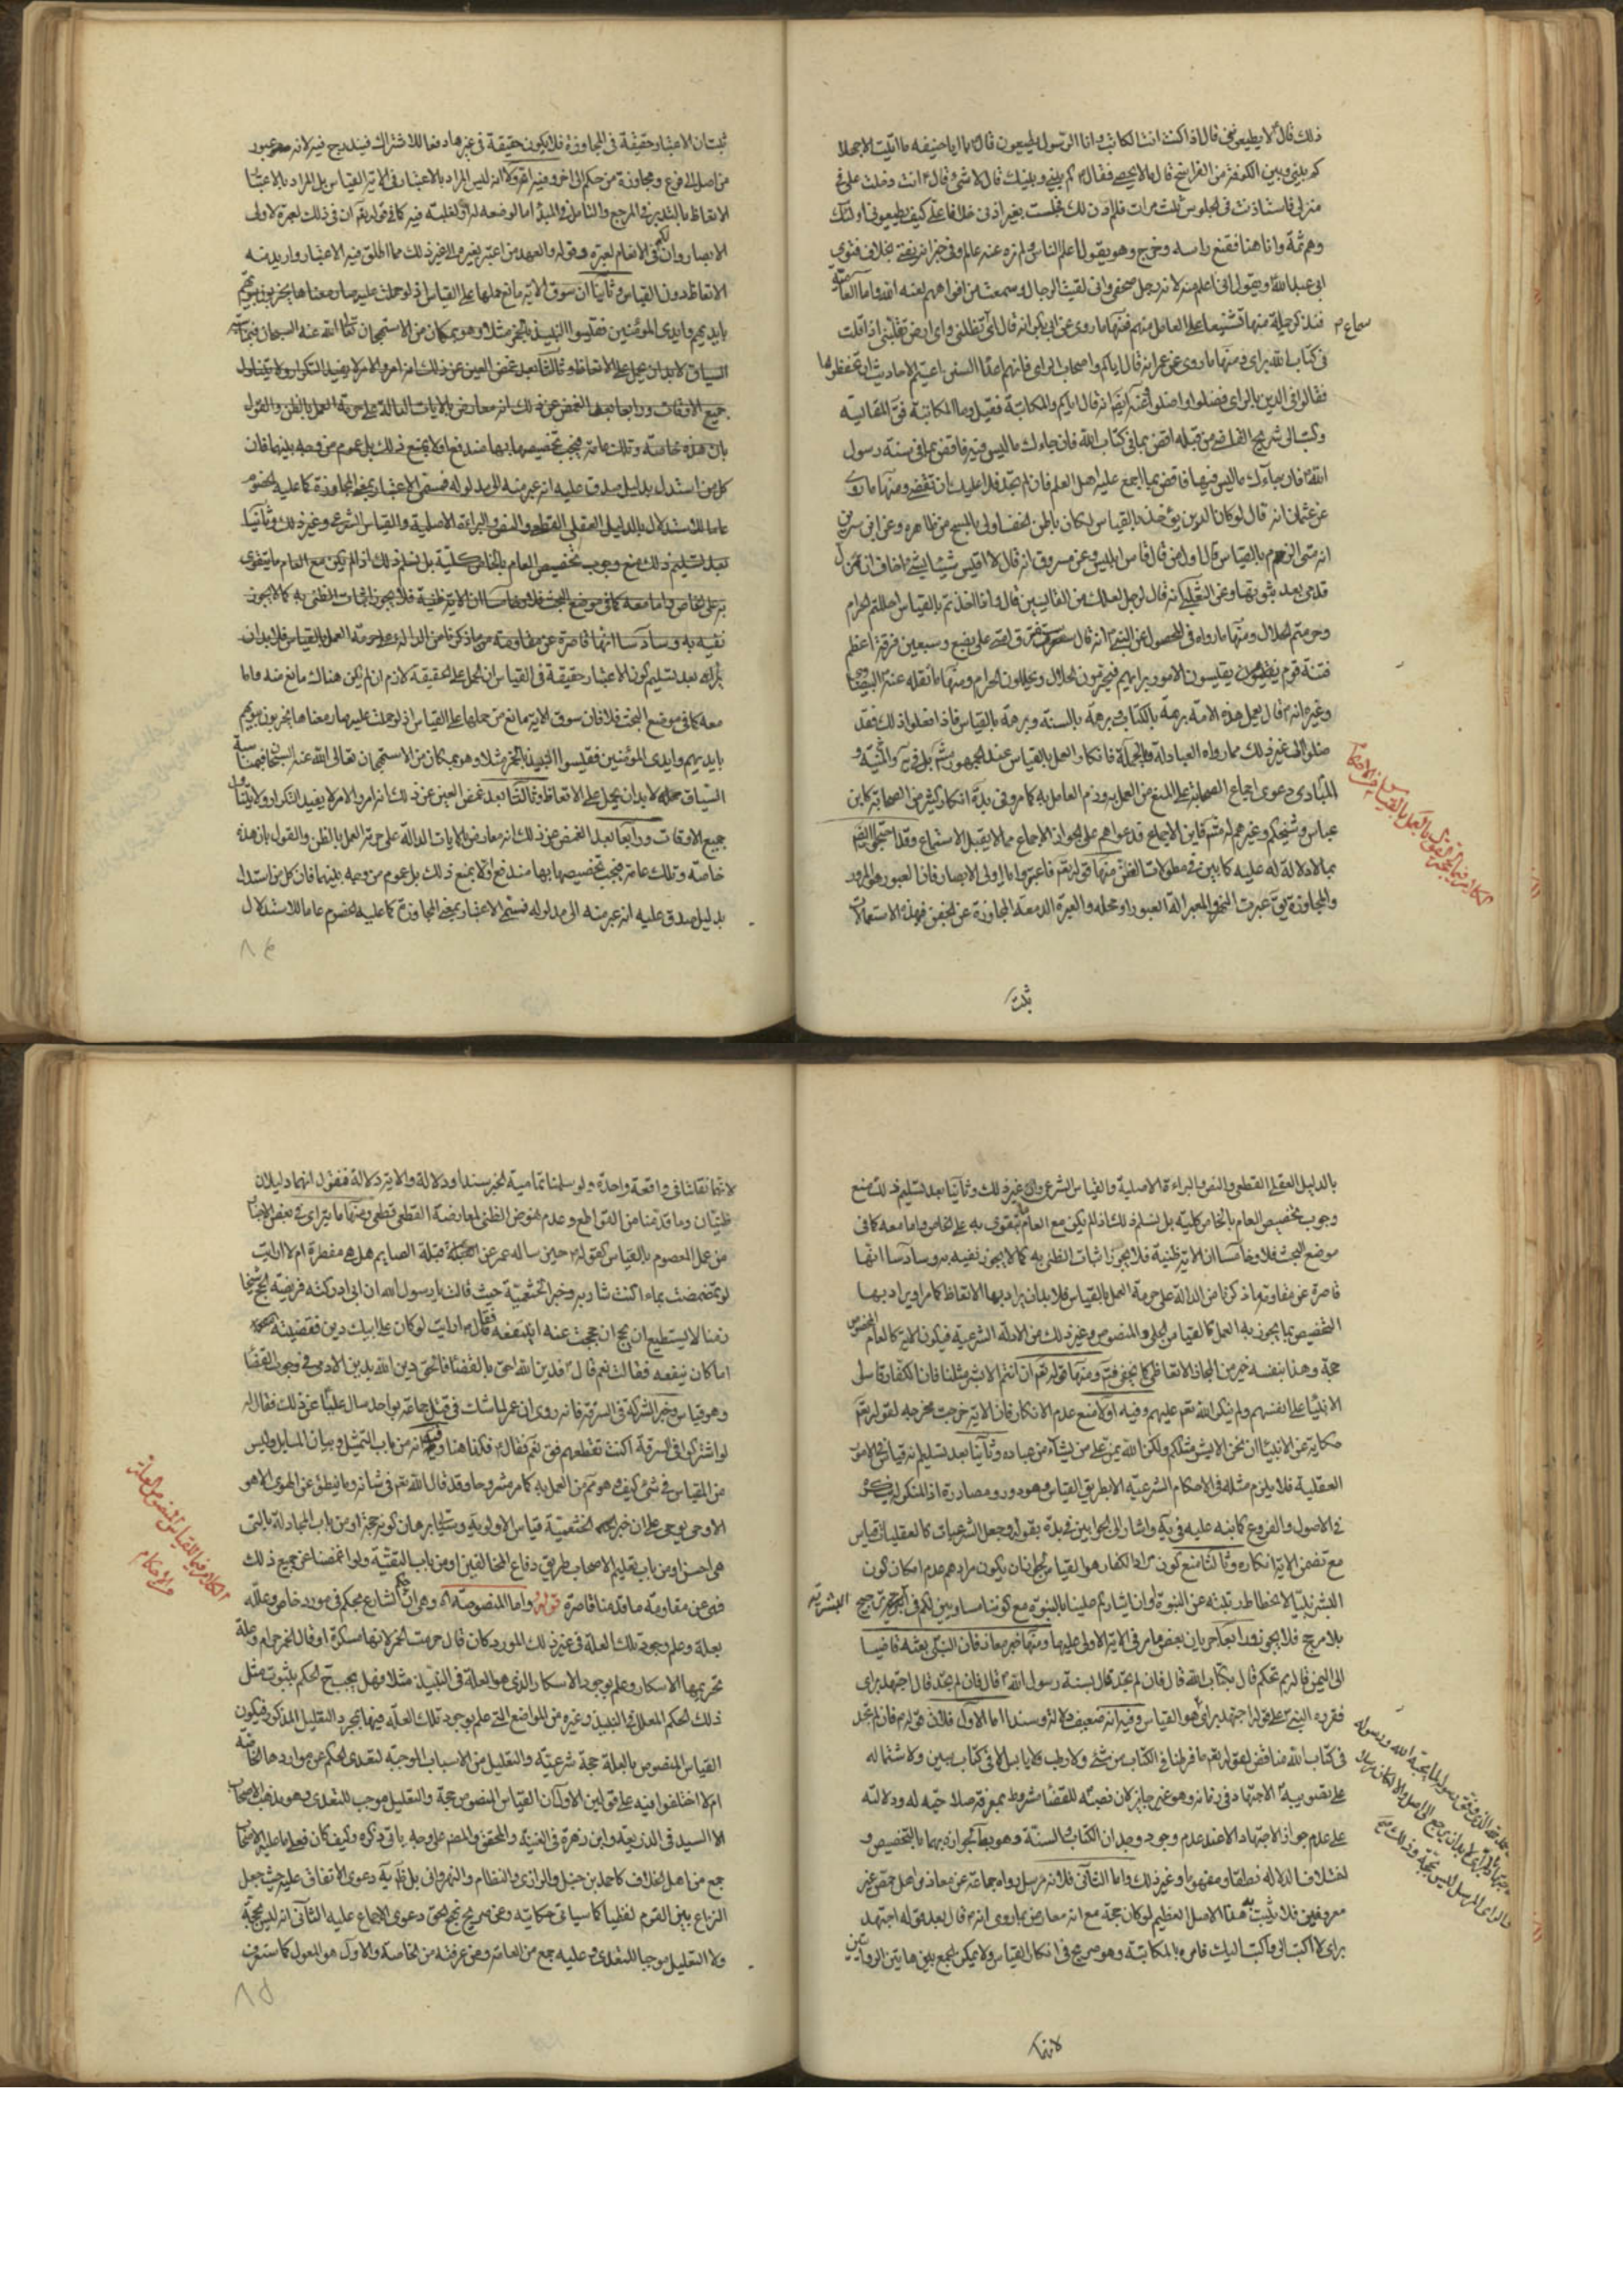 ذلك قال لا يطيعوني قال اذا كنت انت الكاتب وانا الرسول لا يطيعون قال يا ابا حنيفه ما اتيت الا جهلا
كم بيني وبين الكوفة من الفراسخ قال ما لا يحصى فقال كم بيني وبينك قال لا شئ قال انت دخلت على في
منزلي فاستاذنت في الجلوس ثلث مرات فلم اذن لك فجلست بغير اذني خلافا على كيف يطيعوني اولئك
وهم ثمة وانا هنا فقنع راسه وخرج وهو يقول اعلم الناس ولم نره عند عالم وفي خبر انه يفتي بخلاف فتوى
ابي عبد الله ويقول انى اعلم منه لانه رجل صحفي وانى لقيت الرجال وسمعت من افواههم لعنه الله واما العامة
فنذكر جملة منها تشنيعا على العامل منهم فمنها ما روى عن ابي بكر انه قال اى سماء تظلني واى ارض تقلني اذا قلت
في كتاب الله براى ومنها ما روى عن عمر انه قال اياكم واصحاب الراى فانهم اعداء السنن اعيتهم الاحاديث ان يحفظوها
فقالوا في الدين بالراى فضلوا واضلوا وعنه ايضا انه قال اياكم والمكايلة فقيل وما المكايلة قال المقايسة
وكتب الى شريح القاضي من قبله اقض بما في كتاب الله فان جاءك ما ليس فيه فاقض بما في سنة رسول
الله فان جاءك ما ليس فيها فاقض بما اجمع عليه اهل العلم فان لم تجد فلا عليك ان تقضي ومنها ما روى
عن عثمان انه قال لو كان الدين يؤخذ بالقياس لكان باطن الخف اولى بالمسح من ظاهره وعن ابن سيرين
انه قال اول من قاس ابليس وعن مسروق انه قال لا اقيس شيئا بشئ اخاف ان تزل
قدمى بعد ثبوتها وعن الشعبي انه قال لرجل لعلك من القايسين قال وانا اخذتم بالقياس احللتم الحرام
وحرمتم الحلال ومنها ما رواه في المحصول عن النبي انه قال ستفترق امتي على بضع وسبعين فرقة اعظم
فتنة قوم يقيسون الامور برايهم فيحرمون الحلال ويحللون الحرام ومنها ما نقله عنه البيضاوي
وغيره انه قال يعمل هذه الامة برهة بالكتاب وبرهة بالسنة وبرهة بالقياس فاذا فعلوا ذلك فقد
ضلوا الى غير ذلك مما رواه العبادلة وبالجملة فانكار العمل بالقياس عند الجمهور
المبادى دعوى اجماع الصحابة على المنع من العمل به وذم العامل به كما مر وفي بدّه انكار كثير من الصحابة كابن
عباس وشيخكم وغيرهم فاين الاجماع فدعواهم على الجواز الاجماع مما لا يقبل الاستماع وقد احتجوا ايضا
بما لا دلالة له عليه كما بين في مطولات الفن منها قوله تعالى فاعتبروا يا اولى الابصار فان العبور هو المرور
والمجاوزة يقال عبرت النهر والمعبر الة العبور او محله والعبرة الدمعة المجاوزة عن الجفن فهذه الاستعمالات
سماء م
الكلام في العمل بالقياس في الاحكام
ثبت
ثبت ان الاعتبار حقيقة في المجاوزة فلا يكون حقيقة في غيرها دفعا للاشتراك فيندرج فيه لانه عبور
من اصل الى فرع ومجاوزة من حكم الى اخر وفيه اولا انه ليس المراد بالاعتبار في الاية القياس بل المراد بالاعتبار
الاتعاظ بالتدبر في المرجع والتامل في المبدا اما لوضعه له او لغلبته فيه كما في قوله تعالى ان في ذلك لعبرة لاولى
الابصار وان لكم في الانعام لعبرة وقوله والسعيد من اعتبر بغيره الى غير ذلك مما اطلق فيه الاعتبار واريد منه
الاتعاظ دون القياس وثانيا ان سوق الاية مانع حملها على القياس اذ لو حملت عليه صار معناها يخربون بيوتهم
بايديهم وايدى المؤمنين فقيسوا النبيذ بالخمر مثلا وهو بمكان من الاستهجان تعالى الله عنه السبحان فبمناسبة
السياق لا بد ان يحمل على الاتعاظ وثالثا بعد غمض العين عن ذلك انه امر والامر لا يفيد التكرار ولا يتناول
جميع الاوقات ورابعا بعد الغمض عن ذلك انه معارض بالايات الدالة على حرمة العمل بالظن والقول
بان هذه خاصة وتلك عامة فيجب تخصيصها بها مندفع اولا بمنع ذلك بل عموم من وجه بينهما فان
كل من استدل بدليل صدق عليه انه عبر منه الى مدلوله فسمى الاعتبار بمعنى المجاوزة كما عليه الخصوم
عاما للاستدلال بالدليل العقلي القطعي والنص والبراءة الاصلية والقياس الشرعي وغير ذلك وثانيا
بعد تسليم ذلك منع وجوب تخصيص العام بالخاص كلية بل نسلم ذلك اذا لم يكن مع العام ما يتقوى
به على الخاص واما معه كما في موضع البحث فلا وخامسا ان الاية ظنية فلا يجوز اثبات الظني به كما لا يجوز
نفيه به وسادسا انها قاصرة عن مقاومة ما ذكرنا من الدالة على حرمة العمل بالقياس فلا بد ان
يراد بعد تسليم كون الاعتبار حقيقة في القياس ان الحمل على الحقيقة لازم ان لم يكن هناك مانع منه واما
معه كما في موضع البحث فلا فان سوق الاية مانع من حملها على القياس اذ لو حملت عليه صار معناها يخربون بيوتهم
بايديهم وايدى المؤمنين فقيسوا النبيذ بالخمر مثلا وهو بمكان من الاستهجان تعالى الله عنه السبحان فبمناسبة
السياق لا بد ان يحمل على الاتعاظ وثالثا بعد غمض العين عن ذلك انه امر والامر لا يفيد التكرار ولا يتناول
جميع الاوقات ورابعا بعد الغمض عن ذلك انه معارض بالايات الدالة على حرمة العمل بالظن والقول بان هذه
خاصة وتلك عامة فيجب تخصيصها بها مندفع اولا بمنع ذلك بل عموم من وجه بينهما فان كل من استدل
بدليل صدق عليه انه عبر منه الى مدلوله فسمى الاعتبار بمعنى المجاوزة كما عليه الخصوم عاما للاستدلال
٨٤
بالدليل العقلي القطعي والنص والبراءة الاصلية والقياس الشرعي والى غير ذلك وثانيا بعد تسليم ذلك منع
وجوب تخصيص العام بالخاص كلية بل نسلم ذلك اذا لم يكن مع العام ما يتقوى به على الخاص واما معه كما في
موضع البحث فلا وخامسا ان الاية ظنية فلا يجوز اثبات الظني به كما لا يجوز نفيه به وسادسا انها
قاصرة عن مقاومة ما ذكرنا من الدالة على حرمة العمل بالقياس فلا بد ان يراد بها الاتعاظ كما مر او يراد بها
التخصيص بما يجوز به العمل كالقياس الجلي والمنصوص وغير ذلك من الادلة الشرعية فيكون الاية كالعام المخصوص
حجة وهذا بنفسه خير من المجاز الاتعاظي كما يخفى فتدبر ومنها قوله تعالى ان انتم الا بشر مثلنا فان الكفار قاسوا
الانبياء على انفسهم ولم ينكر الله تعالى عليهم وفيه اولا منع عدم الانكار فان الاية خرجت مخرجه لقوله تعالى
حكاية عن الانبياء ان نحن الا بشر مثلكم ولكن الله يمن على من يشاء من عباده وثانيا بعد تسليمه انه قياس في الامور
العقلية فلا يلزم مثله في الاحكام الشرعية الا بطريق القياس وهو دور ومصادرة اذ المنكر له ينكره
في الاصول والفروع كما نبه عليه في يه واشار الى الجوابين في بدّه بقوله وجعل الشرعيات كالعقليات قياس
مع تضمن الاية انكاره وثالثا منع كون مراد الكفار هو القياس لجواز ان يكون مرادهم عدم امكان كون
البشر نبيا لانحطاط رتبته عن النبوة او ان ايثاركم علينا بالنبوة مع كوننا مساويين لكم في البشرية ترجيح
بلا مرجح فلا يجوز ورابعا جريان بعض ما مر في الاية الاولى عليها ومنها خبر معاذ فان النبي بعثه قاضيا
الى اليمن قال بم تحكم قال بكتاب الله قال فان لم تجد قال بسنة رسول الله قال فان لم تجد قال اجتهد براى
فقرره النبي على قوله اجتهد براى وهو القياس وفيه انه ضعيف دلالة وسندا اما الاول فلان قوله فان لم تجد
في كتاب الله مناقض لقوله تعالى ما فرطنا في الكتاب من شئ ولا رطب ولا يابس الا في كتاب مبين ولاشتماله
على تصويب الاجتهاد في زمانه وهو غير جايز لان نصبه للقضاء مشروط بمعرفة صلاحيته له ودلالته
على عدم جواز الاجتهاد الا عند عدم وجود وجدان الكتاب والسنة وهو يعم الجواز بهما بالتخصيص و
لاختلاف الدلالة نطقا ومفهوما وغير ذلك واما الثاني فلانه مرسل رواه جماعة عن معاذ من اهل حمص غير
معروفين فلا يثبت به هذا الاصل العظيم لو كان حجة مع انه معارض بما روى انه قال بعد قوله اجتهد
براى لا اكتب الى واكتب اليك فامره بالمكاتبة وهو صريح في انكار القياس ولا يمكن الجمع بين هاتين الروايتين
البشرية
لانهما
لانهما نقلتا في واقعة واحدة ولو سلمنا تمامية الخبر سندا ودلالة والاية دلالة فنقول انهما دليلان
ظنيان وما قدمنا من القواطع وعدم نهوض الظني لمعارضة القطعي قطعي ومنها ما يتراى في بعض الاخبار
من عمل المعصوم بالقياس كقوله حين ساله عمر عن قبلة الصايم هل هي مفطرة ام لا ارايت
لو تمضمضت بماء اكنت شاربه وخبر الخثعمية حيث قالت يا رسول الله ان ابي ادركته فريضة الحج شيخا
زمنا لا يستطيع ان يحج ان حججت عنه اينفعه فقال ارايت لو كان على ابيك دين فقضيته
اما كان ينفعه فقالت نعم قال فدين الله احق بالقضاء فالحق دين الله بدين الادمي في وجوب القضاء
وهو قياس وخبر الشركة في السرقة فانه روى ان عمر لما شك في قتل جماعة بواحد سال عليا عن ذلك فقال له
لو اشتركوا في السرقة اكنت تقطعهم قال نعم فقال فكذا هنا وفيه انه من باب التمثيل وبيان المسايل وليس
من القياس في شئ كيف وهو منع من العمل به كما مر مشروحا وقد قال الله تعالى في شانه وما ينطق عن الهوى ان هو
الا وحى يوحى على ان خبر الخثعمية قياس الاولوية وسياتي برهان كونه حجة او من باب المجادلة بالتي
هي احسن او من باب تعليم الاصحاب طريق دفاع المخالفين او من باب التقية ولو اغمضنا عن جميع ذلك
فهي عن مقاومة ما قدمنا قاصرة قوله واما المنصوصة اه وهي ان الشارع حكم بحكم في مورد خاص وعلله
بعلة وعلم وجود تلك العلة في غير ذلك المورد كان قال حرمت الخمر لانها مسكرة او قال الخمر حرام وعلة
تحريمها الاسكار وعلم بوجود الاسكار الذي هو العلة في النبيذ مثلا فهل يجب ح الحكم بثبوت مثل
ذلك الحكم المعلل في النبيذ وغيره من المواضع التي علم بوجود تلك العلة فيها بمجرد التعليل المذكور فيكون
القياس المنصوص بالعلة حجة شرعية والتعليل من الاسباب الموجبة لتعدى الحكم عن مواردها الخاصة
ام لا اختلفوا فيه على قولين الاول ان القياس المنصوص حجة والتعليل موجب للتعدى وهو مذهب الاصحاب
الا السيد في الذريعة وابن زهرة في الغنية والمحقق والمصنف على وجه ياتي ذكره وكيف كان فعلى ما عليه الاصحاب
جمع من اهل الخلاف كاحمد بن حنبل والرازى والنظام والنهرواني بل في يه دعوى الاتفاق عليه حيث جعل
النزاع بين القوم لفظيا كما سياتي حكايته وعن صريح دعوى الاجماع عليه الثاني انه ليس بحجة
ولا التعليل موجبا للتعدى وعليه جمع من العامة ومن عرفته من الخاصة والاول هو المعول كما ستعرف
الكلام في القياس المنصوص العلة
من الاحكام
٨٥